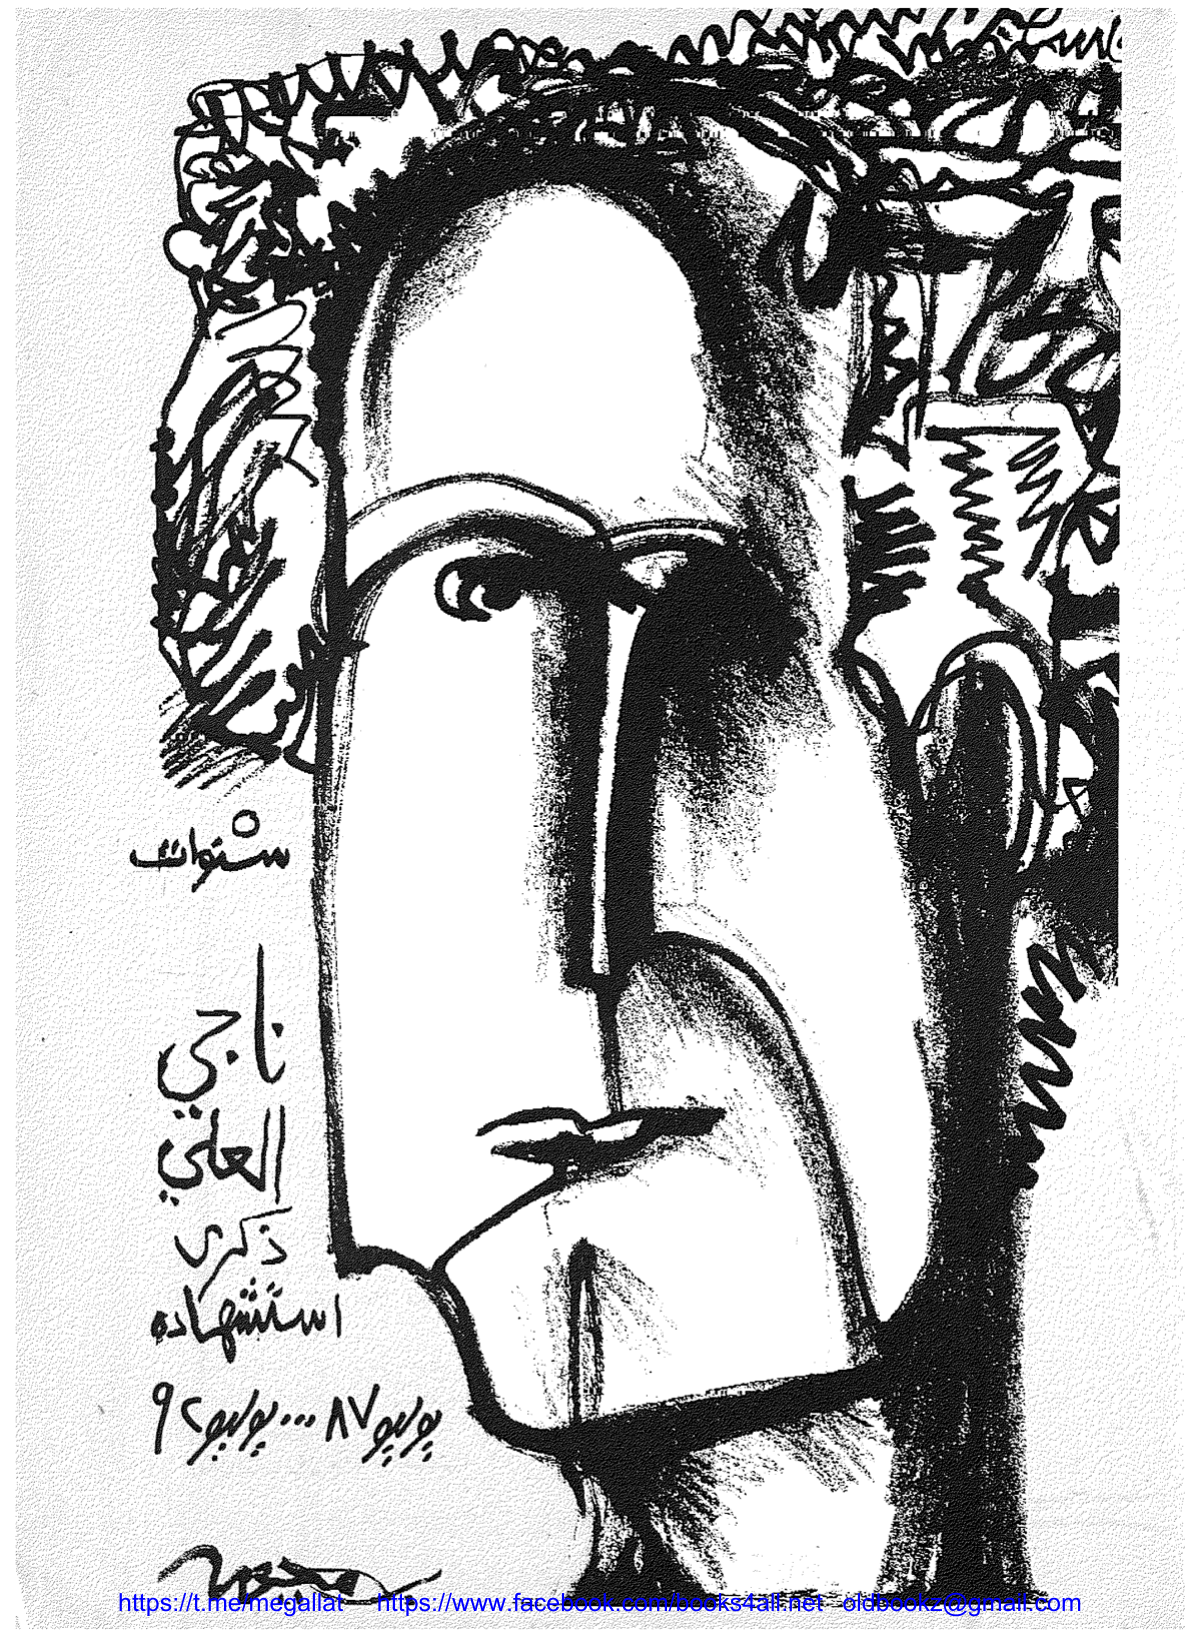 ٥
سنوات
ناجي
العلي
ذكرى
استشهاده
يوليو ٨٧ ... يوليو ٩٢
https://t.me/megallat https://www.facebook.com/books4all.net oldbookz@gmail.com